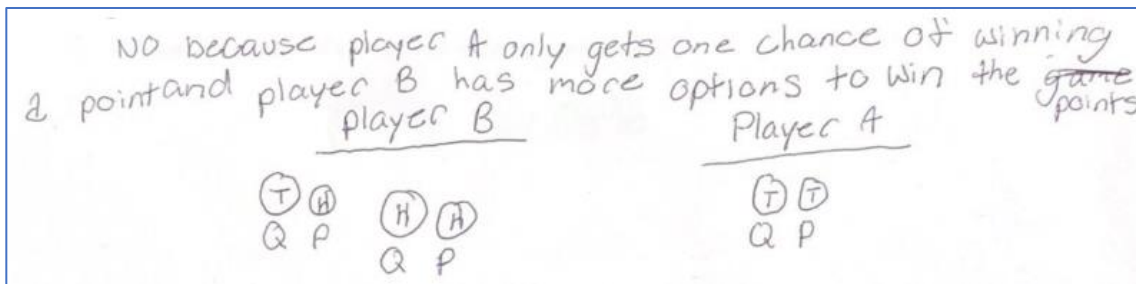 No because player A only gets one chance of winning
a point and player B has more options to win the game points
player B Player A
T H H H T T
Q P Q P Q P